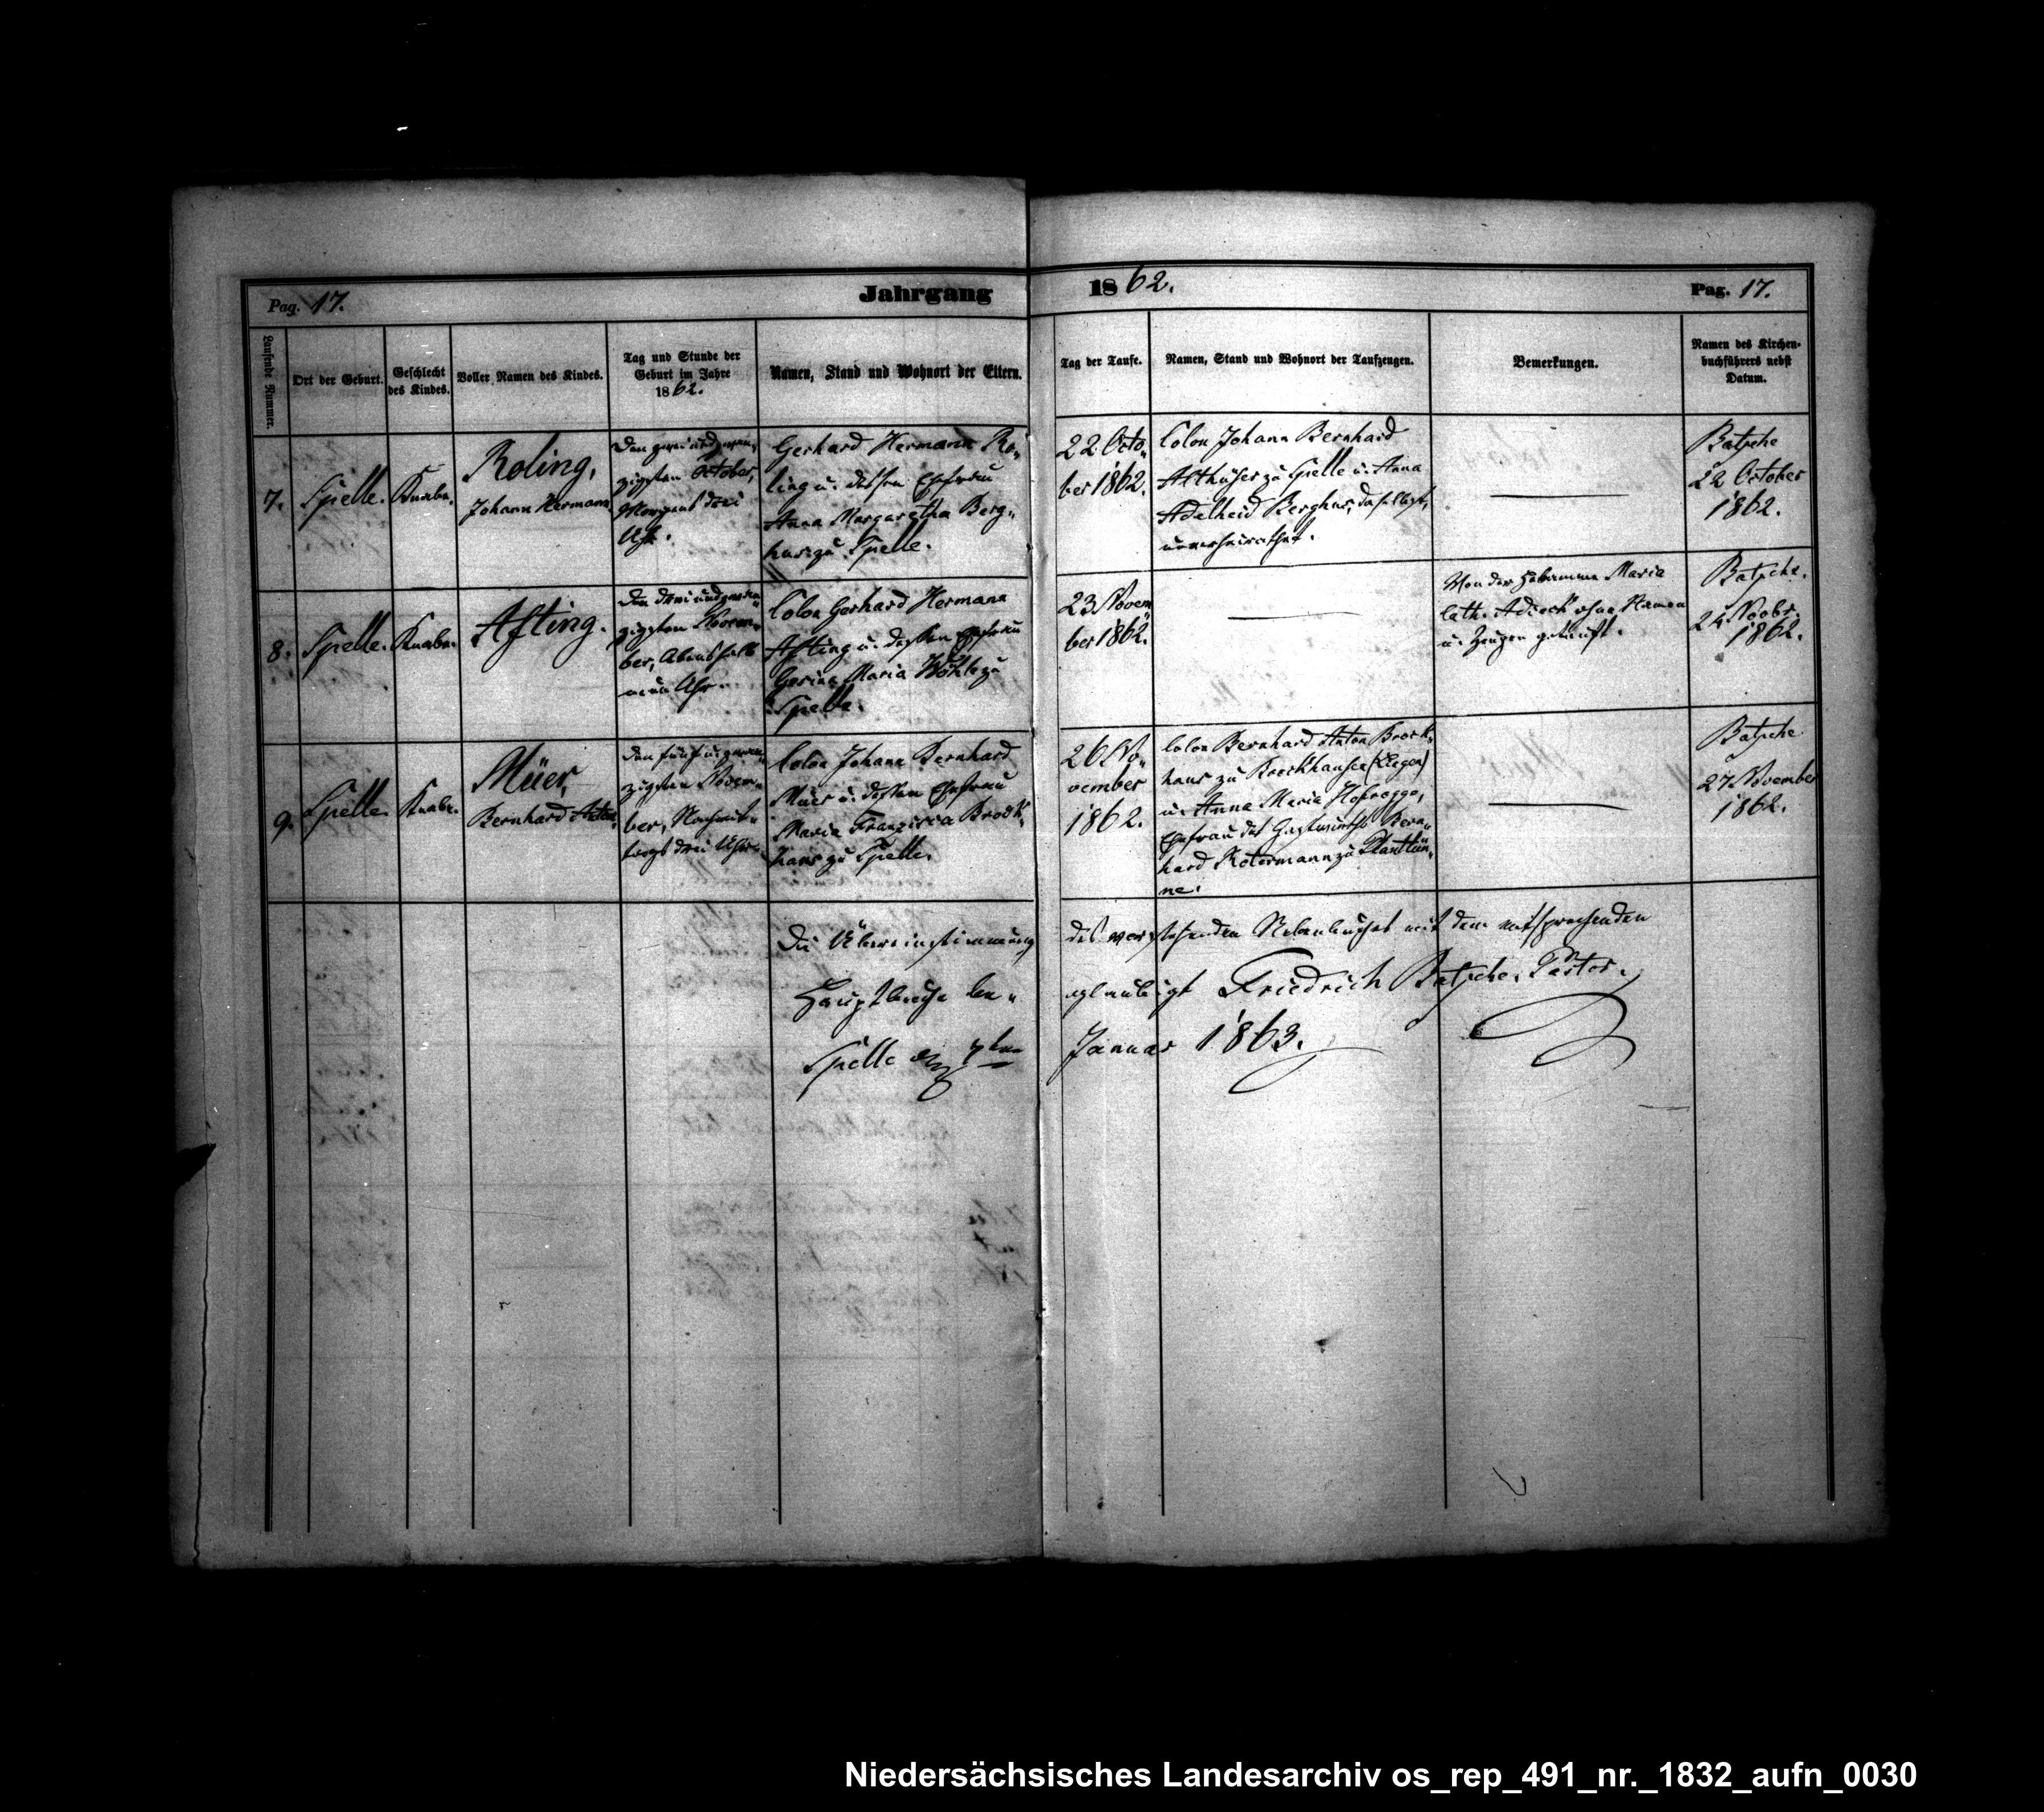 Pag. 17.
Jahrgang 1862.
Pag. 17.
Laufende Nummer.
Ort der Geburt.
Geschlecht
des Kindes.
Voller Namen des Kindes.
Tag und Stunde der
Geburt im Jahre
1862.
Namen, Stand und Wohnort der Eltern.
Tag der Taufe.
Namen, Stand und Wohnort der Taufzeugen.
Bemerkungen.
Namen des Kirchen-
buchführers nebst
Datum.
7.
Spelle.
Knabe.
Roling,
Johann Hermann
Den zwei und zwan-
zigsten October,
Morgens drei
Uhr.
Gerhard Hermann Ro-
ling u. dessen Ehefrau
Anna Margaretha Berg-
hus zu Spelle.
22 Octo-
ber 1862.
Colon Johann Bernhard
Althüser zu Spelle u. Anna
Adelheid Berghus, daselbst,
unverheirathet.
Batsche
22 October
1862.
8.
Spelle.
Knabe.
Afting.
Den drei und zwan-
zigsten Novem-
ber, Abends halb
neun Uhr.
Colon Gerhard Hermann
Afting u. dessen Ehefrau
Gesina Maria zu
Spelle.
23 Novem-
ber 1862.
Von der Hebamme Maria
Cath. Adick ohne Namen
u. Zeugen getauft.
Batsche.
24 Novbr.
1862.
9.
Spelle.
Knabe.
Müer,
Bernhard Anton
Den fünf u. zwan-
zigsten Novem-
ber, Nachmit-
tags drei Uhr.
Colon Johann Bernhard
Müer u. dessen Ehefrau
Maria Franzisca Brock-
haus zu Spelle.
26 No-
vember
1862.
Colon Bernhard Anton Brock-
haus zu Brockhausen (Lingen)
u. Anna Maria Hofrogge,
Ehefrau des Gastwirths Bern-
hard Rotermann zu Plantlün-
ne.
Batsche
27. November
1862.
Die Übereinstimmung des vorstehenden Nebenbuches mit dem entsprechenden
Hauptbuche be- glaubigt Friedrich Batsche, Pastor.
Spelle den 7ten Januar 1863.
Niedersächsisches Landesarchiv os_rep_491_nr._1832_aufn_0030